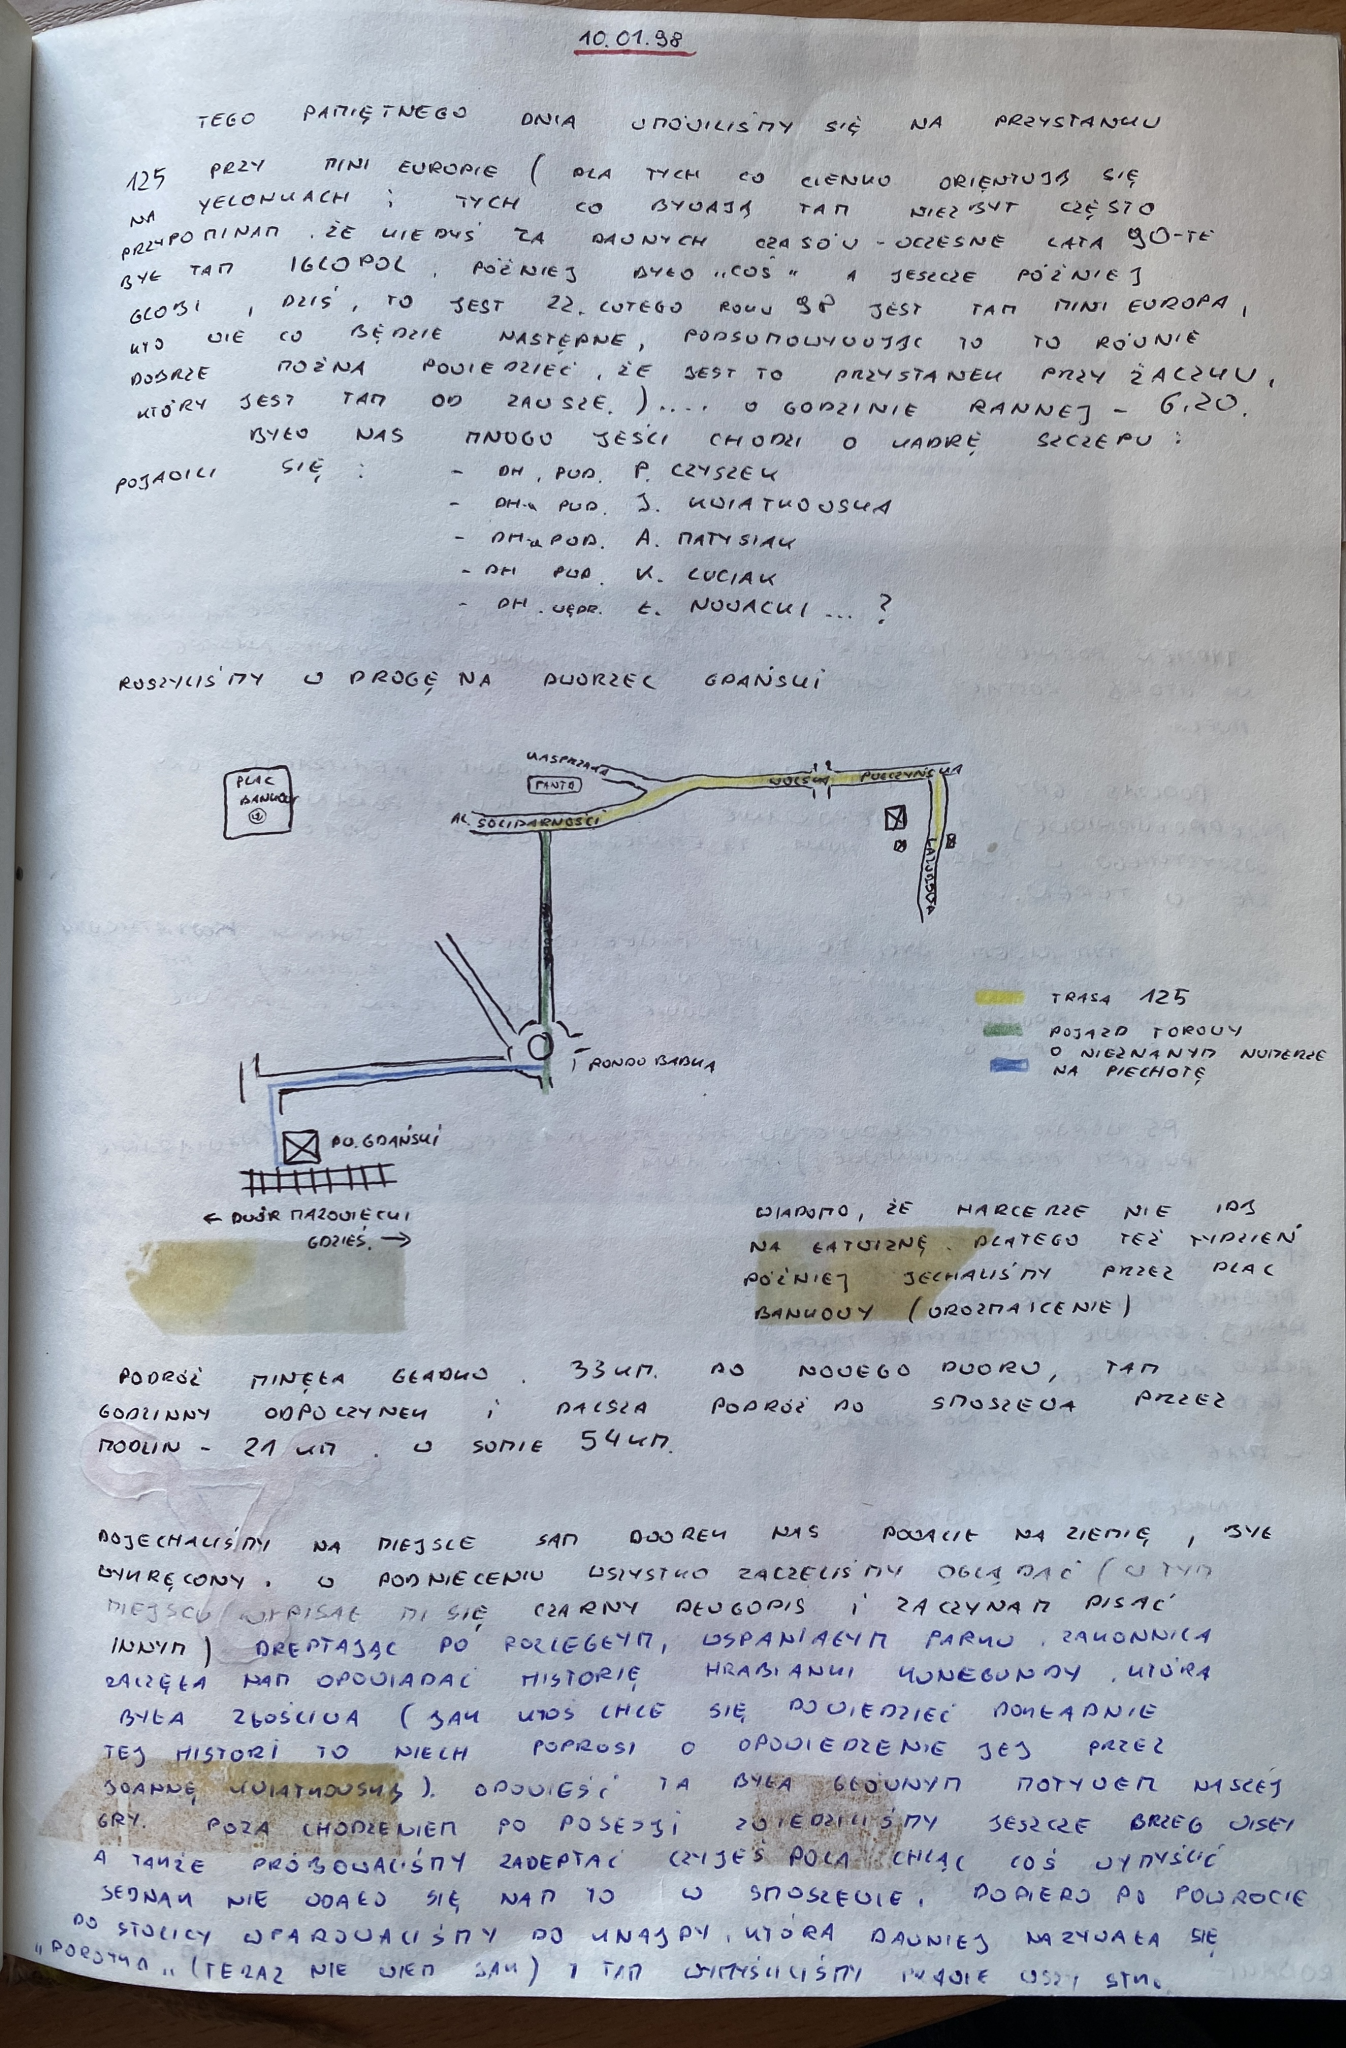 10.01.98
TEGO PAMIĘTNEGO DNIA UMÓWILIŚMY SIĘ NA PRZYSTANKU
125 PRZY MINI EUROPIE ( DLA TYCH CO CIENKO ORIĘNTUJĄ SIĘ
NA YELONKACH i TYCH CO BYWAJĄ TAM NIEZBYT CZĘSTO
PRZYPOMINAM, ŻE KIEDYŚ ZA DAWNYCH CZASÓW - WCZESNE LATA 90-TE
BYŁ TAM IGLOPOL, PÓŹNIEJ BYŁO „COŚ” A JESZCZE PÓŹNIEJ
GLOBI, DZIŚ, TO JEST 22. LUTEGO ROKU 98 JEST TAM MINI EUROPA,
KTO WIE CO BĘDZIE NASTĘPNE, PODSUMOWYWUJĄC TO TO RÓWNIE
DOBRZE MOŻNA POWIEDZIEĆ, ŻE JEST TO PRZYSTANEK PRZY ŻACZKU,
KTÓRY JEST TAM OD ZAWSZE.).... O GODZINIE RANNEJ - 6.20.
BYŁO NAS MNOGO JEŚLI CHODZI O KADRĘ SZCZEPU :
POJAWILI SIĘ : - DH. PWD. P. CZYSZEK
- DH-a PWD. J. KWIATKOWSKA
- DH-a PWD. A. MATYSIAK
- DH PWD. K. LUCIAK
- DH. WĘDR. Ł. NOWACKI ... ?
RUSZYLIŚMY W DROGĘ NA DWORZEC GDAŃSKI
PLAC
BANKOWY
KASPRZAKA
PANTO
AL. SOLIDARNOŚCI
WOLSKA
POŁCZYŃSKA
LAZUROWA
RONDO BABKA
TRASA 125
POJAZD TOROWY
O NIEZNANYM NUMERZE
NA PIECHOTĘ
DW. GDAŃSKI
← DWÓR MAZOWIECKI
GDZIEŚ. →
WIADOMO, ŻE HARCERZE NIE IDĄ
NA ŁATWIZNĘ. DLATEGO TEŻ TYDZIEŃ
PÓŹNIEJ JECHALIŚMY PRZEZ PLAC
BANKOWY (UROZMAICENIE)
PODRÓŻ MINĘŁA GŁADKO. 33 KM. DO NOWEGO DWORU, TAM
GODZINNY ODPOCZYNEK I DALSZA PODRÓŻ DO SMOSZEWA PRZEZ
MODLIN - 21 KM. W SUMIE 54 KM.
DOJECHALIŚMY NA MIEJSCE SAM DWOREK NAS POWALIŁ NA ZIEMIĘ, BYŁ
WYKRĘCONY. W PODNIECENIU WSZYSTKO ZACZELIŚMY OGLĄDAĆ (W TYM
MIEJSCU WYPISAŁ MI SIĘ CZARNY DŁUGOPIS i ZACZYNAM PISAĆ
INNYM) DREPTAJĄC PO ROZLEGŁYM, WSPANIAŁYM PARKU. ZAKONNICA
ZACZĘŁA NAM OPOWIADAĆ HISTORIĘ HRABIANKI KUNEGUNDY, KTÓRA
BYŁA ZŁOŚLIWA (JAK KTOŚ CHCE SIĘ DOWIEDZIEĆ DOKŁADNIE
TEJ HISTORI TO NIECH POPROSI O OPOWIEDZENIE JEJ PRZEZ
JOANNĘ KWIATKOWSKĄ). OPOWIEŚĆ TA BYŁA GŁÓWNYM MOTYWEM NASZEJ
GRY. POZA CHODZENIEM PO POSESJI ZWIEDZILIŚMY JESZCZE BRZEG WISŁY
A TAKŻE PRÓBOWALIŚMY ZADEPTAĆ CZYJEŚ POLA CHCĄC COŚ WYMYŚLIĆ
JEDNAK NIE UDAŁO SIĘ NAM TO W SMOSZEWIE. DOPIERO PO POWROCIE
DO STOLICY WPAROWALIŚMY DO KNAJPY, KTÓRA DAWNIEJ NAZYWAŁA SIĘ
(TERAZ NIE WIEM JAK) I TAM WYMYŚLILIŚMY PRAWIE WSZYSTKO.